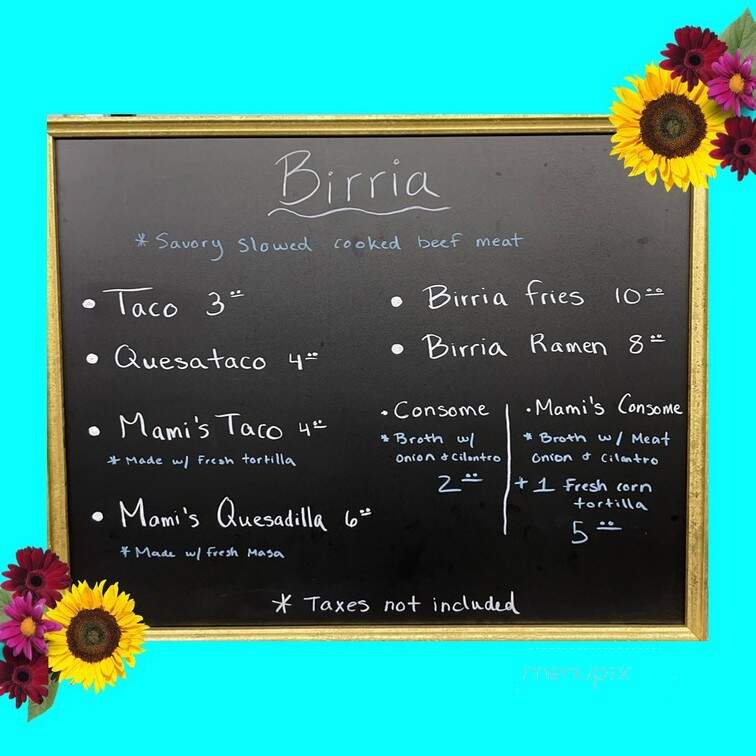 Birria
* Savory slowed cooked beef meat
• Taco 3.00
• Quesataco 4.00
• Mami's Taco 4.00
* Made w/ Fresh tortilla
• Mami's Quesadilla 6.00
* Made w/ Fresh Masa
• Birria fries 10.00
• Birria Ramen 8.00
• Consome
* Broth w/
Onion & Cilantro
2.00
• Mami's Consome
* Broth w/ Meat
Onion & Cilantro
+ 1 Fresh corn
tortilla
5.00
* Taxes not included
menupix